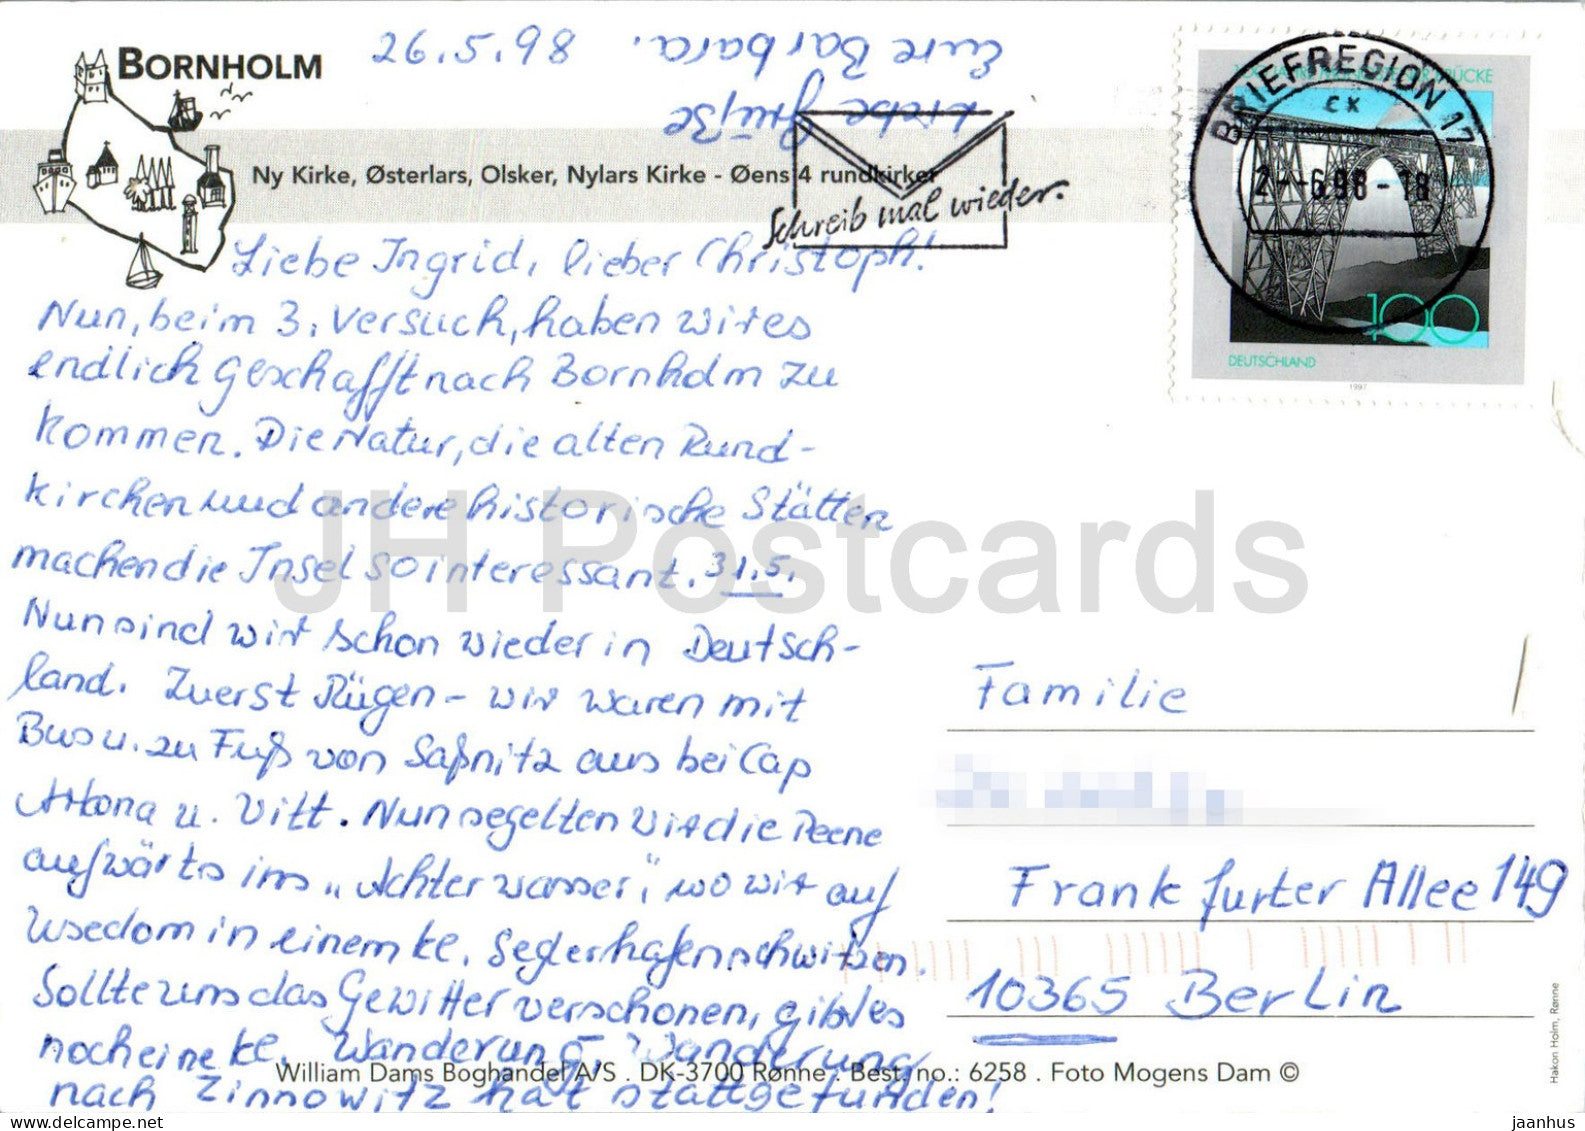 BORNHOLM
26.5.98
Ny Kirke, Østerlars, Olsker, Nylars Kirke - Øens 4 rundkirker
Liebe Ingrid, lieber Christoph!
Nun, beim 3. Versuch, haben wir es
endlich geschafft nach Bornholm zu
kommen. Die Natur, die alten Rund-
kirchen und andere historische Stätten
machen die Insel so interessant. 31.5.
Nun sind wir schon wieder in Deutsch-
land. Zuerst Rügen - wir waren mit
Bus u. zu Fuß von Saßnitz aus bei Cap
Arkona u. Vitt. Nun segelten wir die Peene
aufwärts ins "Achterwasser", wo wir auf
Usedom in einem kl. Seglerhafen schwitzen.
Sollte uns das Gewitter verschonen, gibt es
noch eine kl. Wanderung, Wanderung
nach Zinnowitz hat stattgefunden!
Liebe Grüße
Eure Barbara.
Schreib mal wieder.
BRIEFREGION 17
CK
2.-6.98-18
BRÜCKE
100
DEUTSCHLAND
1997
Familie
Frankfurter Allee 149
10365 Berlin
William Dams Boghandel A/S . DK-3700 Rønne . Best. no.: 6258 . Foto Mogens Dam ©
Hakon Holm, Rønne
JH Postcards
jaanhus
www.delcampe.net